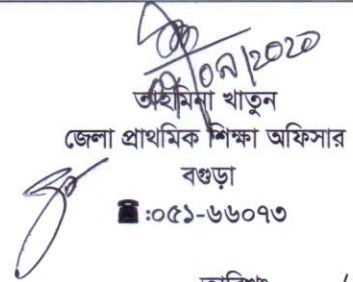 তাহমিনা খাতুন
জেলা প্রাথমিক শিক্ষা অফিসার
বগুড়া
☎:০৫১-৬৬০৭৩